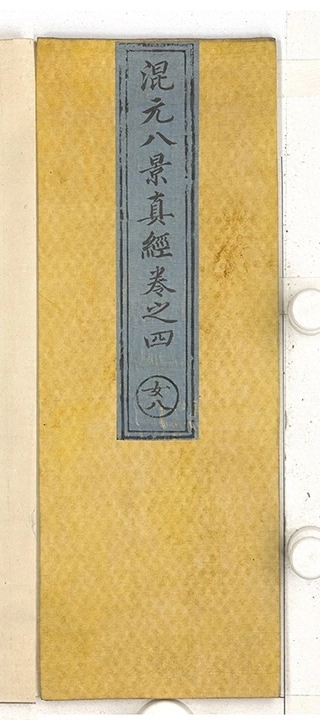 混元八景真經卷之四
女八